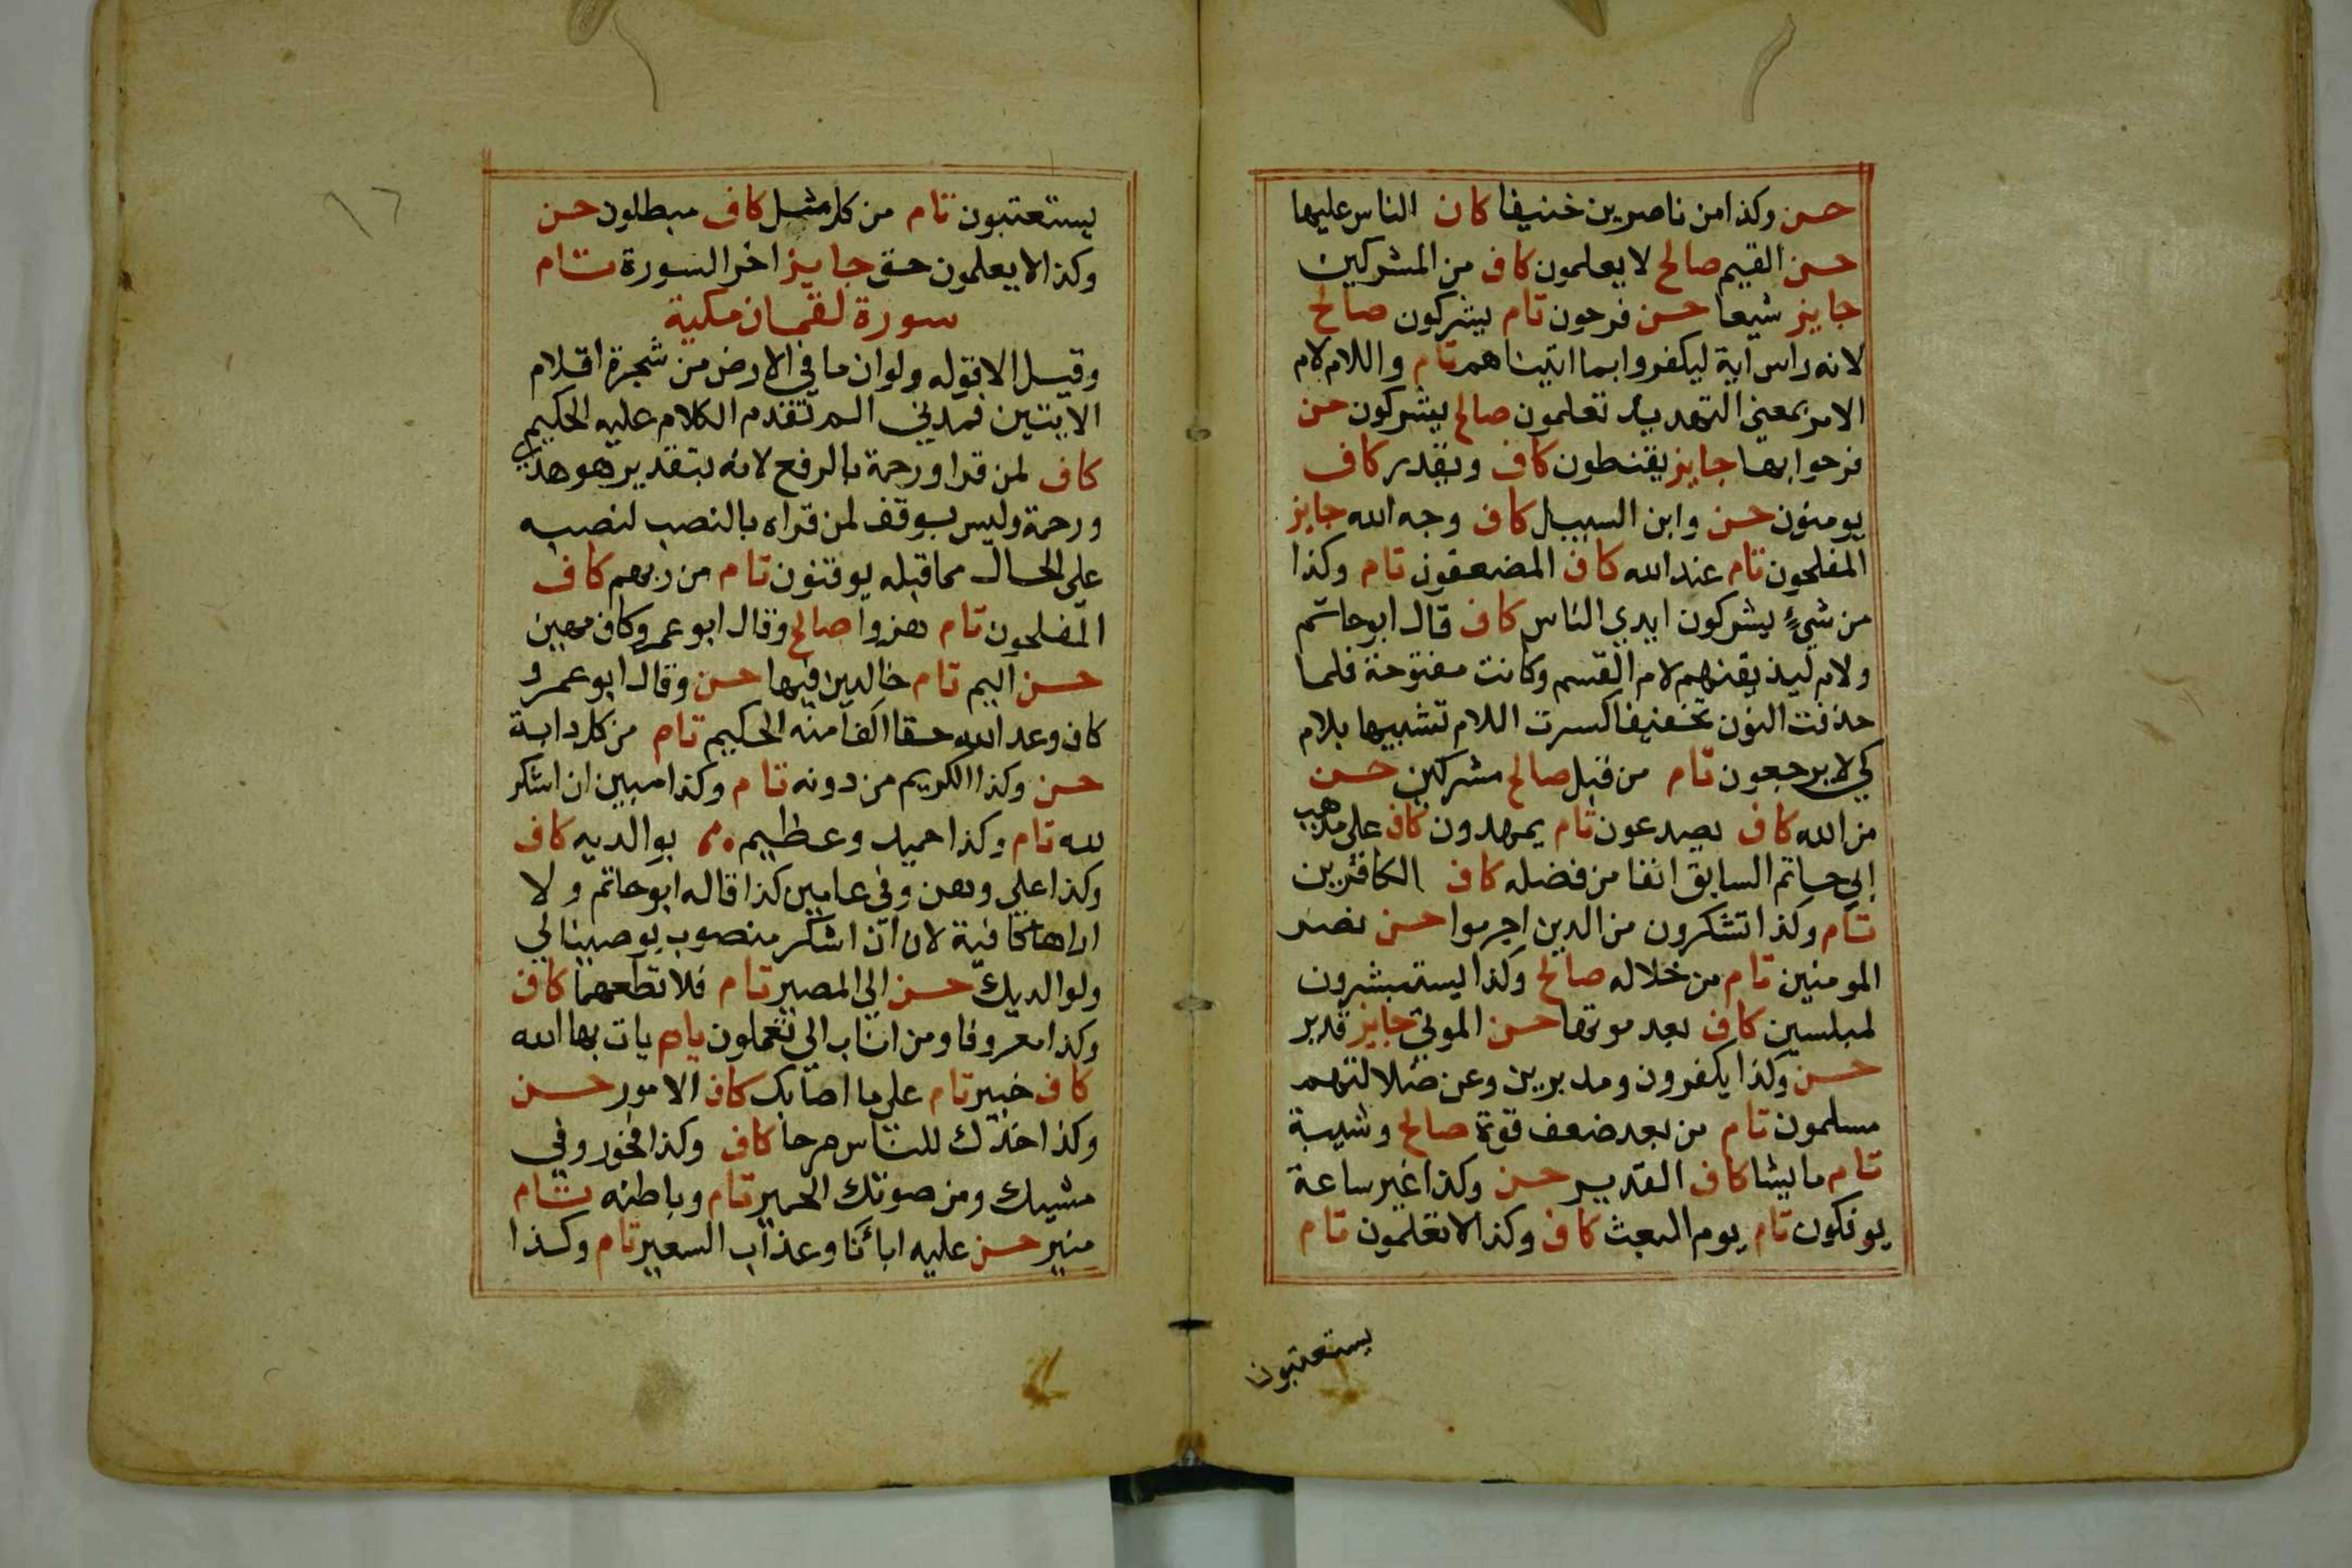 حسن وكذا من ناصرين حنيفا كاف الناس عليها
حسن القيم صالح لا يعلمون كاف من المشركين
جايز شيعا حسن فرحون تام يشركون صالح
لانه راس اية ليكفروا بما اتيناهم تام واللام لام
الامر بمعنى التهديد تعلمون صالح يشركون حسن
فرحوا بها جايز يقنطون كاف ويقدر كاف
يومنون حسن وابن السبيل كاف وجه الله جايز
المفلحون تام عند الله كاف المضعفون تام وكذا
من شيء يشركون ايدي الناس كاف قال ابو حاتم
ولام ليذيقنهم لام القسم وكانت مفتوحة فلما
حذفت النون تخفيفا كسرت اللام تشبيها بلام
كي لا يرجعون تام من قبل صالح مشركين حسن
من الله كاف يصدعون تام يمهدون كاف على مذهب
ابي حاتم السابق انفا من فضله كاف الكافرين
تام وكذا تشكرون من الدين اجرموا حسن نصر
المومنين تام من خلاله صالح وكذا يستبشرون
لمبلسين كاف بعد موتها حسن الموتي جايز قدير
حسن وكذا يكفرون ومدبرين وعن ضلالتهم
مسلمون تام من بعد ضعف قوة صالح وشيبة
تام ما يشا كاف القدير حسن وكذا غير ساعة
يوفكون تام يوم البعث كاف وكذا لا تعلمون تام
يستعتبون
يستعتبون تام من كل مثل كاف مبطلون حسن
وكذا لا يعلمون حق جايز اخر السورة تام
سورة لقمان مكية
وقيل الا قوله ولو ان ما في الارض من شجرة اقلام
الايتين فمدني الم تقدم الكلام عليه الحكيم
كاف لمن قرا ورحمة بالرفع لانه بتقدير هو هدى
ورحمة وليس بوقف لمن قراه بالنصب لنصبه
على الحال مما قبله يوقنون تام من ربهم كاف
المفلحون تام هزوا صالح وقال ابو عمرو كاف مهين
حسن اليم تام خالدين فيها حسن وقال ابو عمرو
كاف وعد الله حقا اكفا منه الحكيم تام من كل دابة
حسن وكذا الكريم من دونه تام وكذا مبين ان اشكر
لله تام وكذا حميد وعظيم بوالديه كاف
وكذا على وهن وفي عامين كذا قاله ابو حاتم ولا
اراها كافية لان ان اشكر منصوب بوصينا لي
ولوالديك حسن الي المصير تام فلا تطعهما كاف
وكذا معروفا ومن اناب الي تعملون تام يات بها الله
كاف خبير تام على ما اصابك كاف الامور حسن
وكذا خدك للناس مرحا كاف وكذا فخور وفي
مشيك ومن صوتك الحمير تام وباطنه تام
منير حسن عليه ابائنا وعذاب السعير تام وكذا